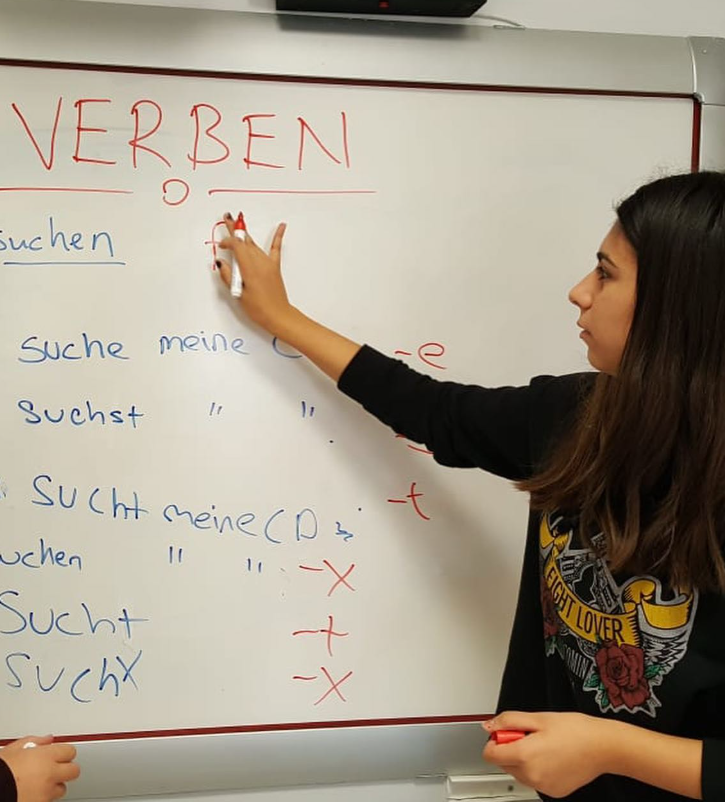 VERBEN
suchen
suche meine -e
suchst " "
sucht meine CD -t
uchen " " -x
sucht -t
suchx -x
FIGHT LOVER